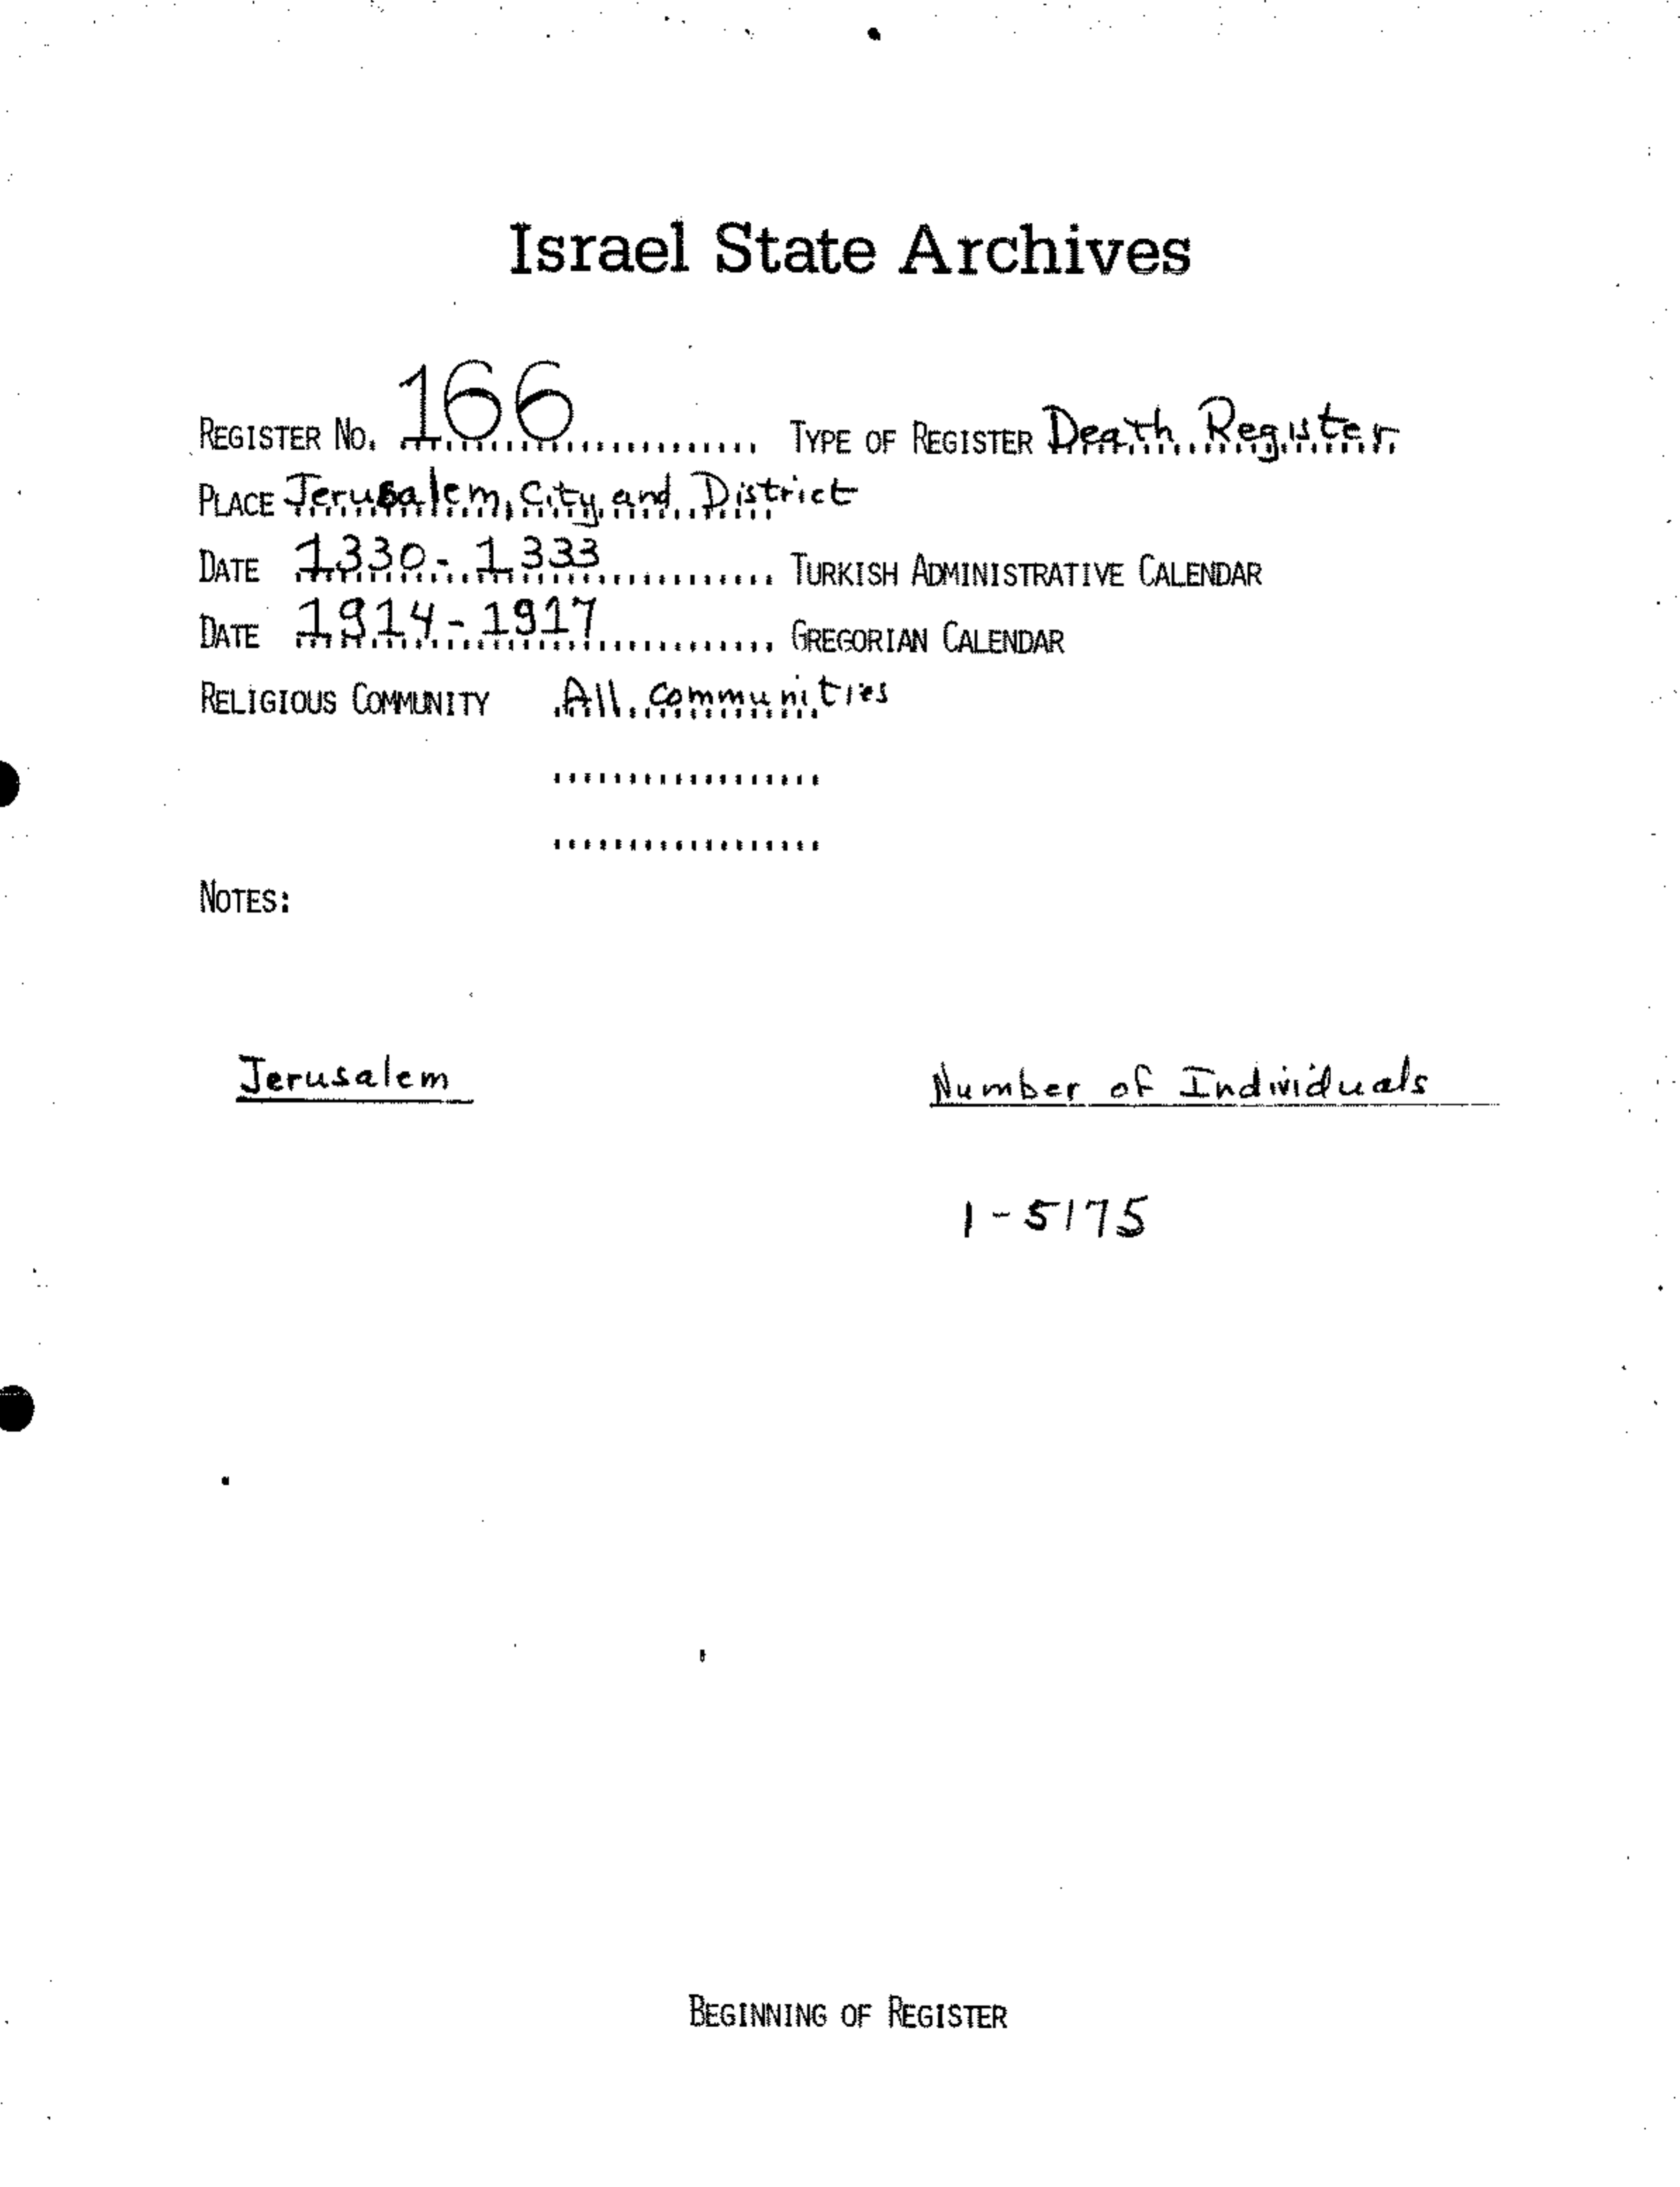 Israel State Archives
REGISTER NO. 166 TYPE OF REGISTER Death Register
PLACE Jerusalem, City and District
DATE 1330 - 1333 TURKISH ADMINISTRATIVE CALENDAR
DATE 1914 - 1917 GREGORIAN CALENDAR
RELIGIOUS COMMUNITY All communities
NOTES:
Jerusalem Number of Individuals
1 - 5175
BEGINNING OF REGISTER